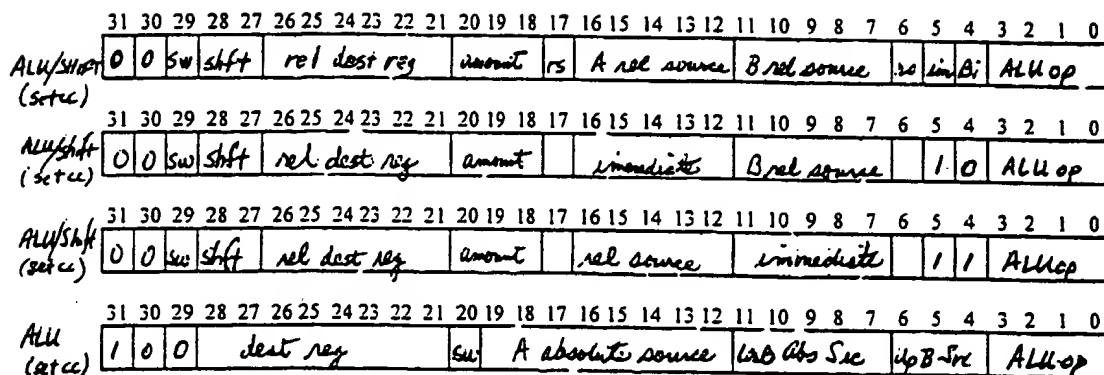 31 30 29 28 27 26 25 24 23 22 21 20 19 18 17 16 15 14 13 12 11 10 9 8 7 6 5 4 3 2 1 0
ALU/Shift 0 0 sw shft rel dest reg amount rs A rel source B rel source im Bi ALU op
(setcc)
31 30 29 28 27 26 25 24 23 22 21 20 19 18 17 16 15 14 13 12 11 10 9 8 7 6 5 4 3 2 1 0
ALU/shft 0 0 sw shft rel dest reg amount immediate B rel source 1 0 ALU op
(setcc)
31 30 29 28 27 26 25 24 23 22 21 20 19 18 17 16 15 14 13 12 11 10 9 8 7 6 5 4 3 2 1 0
ALU/Shft 0 0 sw shft rel dest reg amount rel source immediate 1 1 ALU op
(setcc)
31 30 29 28 27 26 25 24 23 22 21 20 19 18 17 16 15 14 13 12 11 10 9 8 7 6 5 4 3 2 1 0
ALU 1 0 0 dest reg sw A absolute source B Abs Src B-Src ALU-op
(setcc)